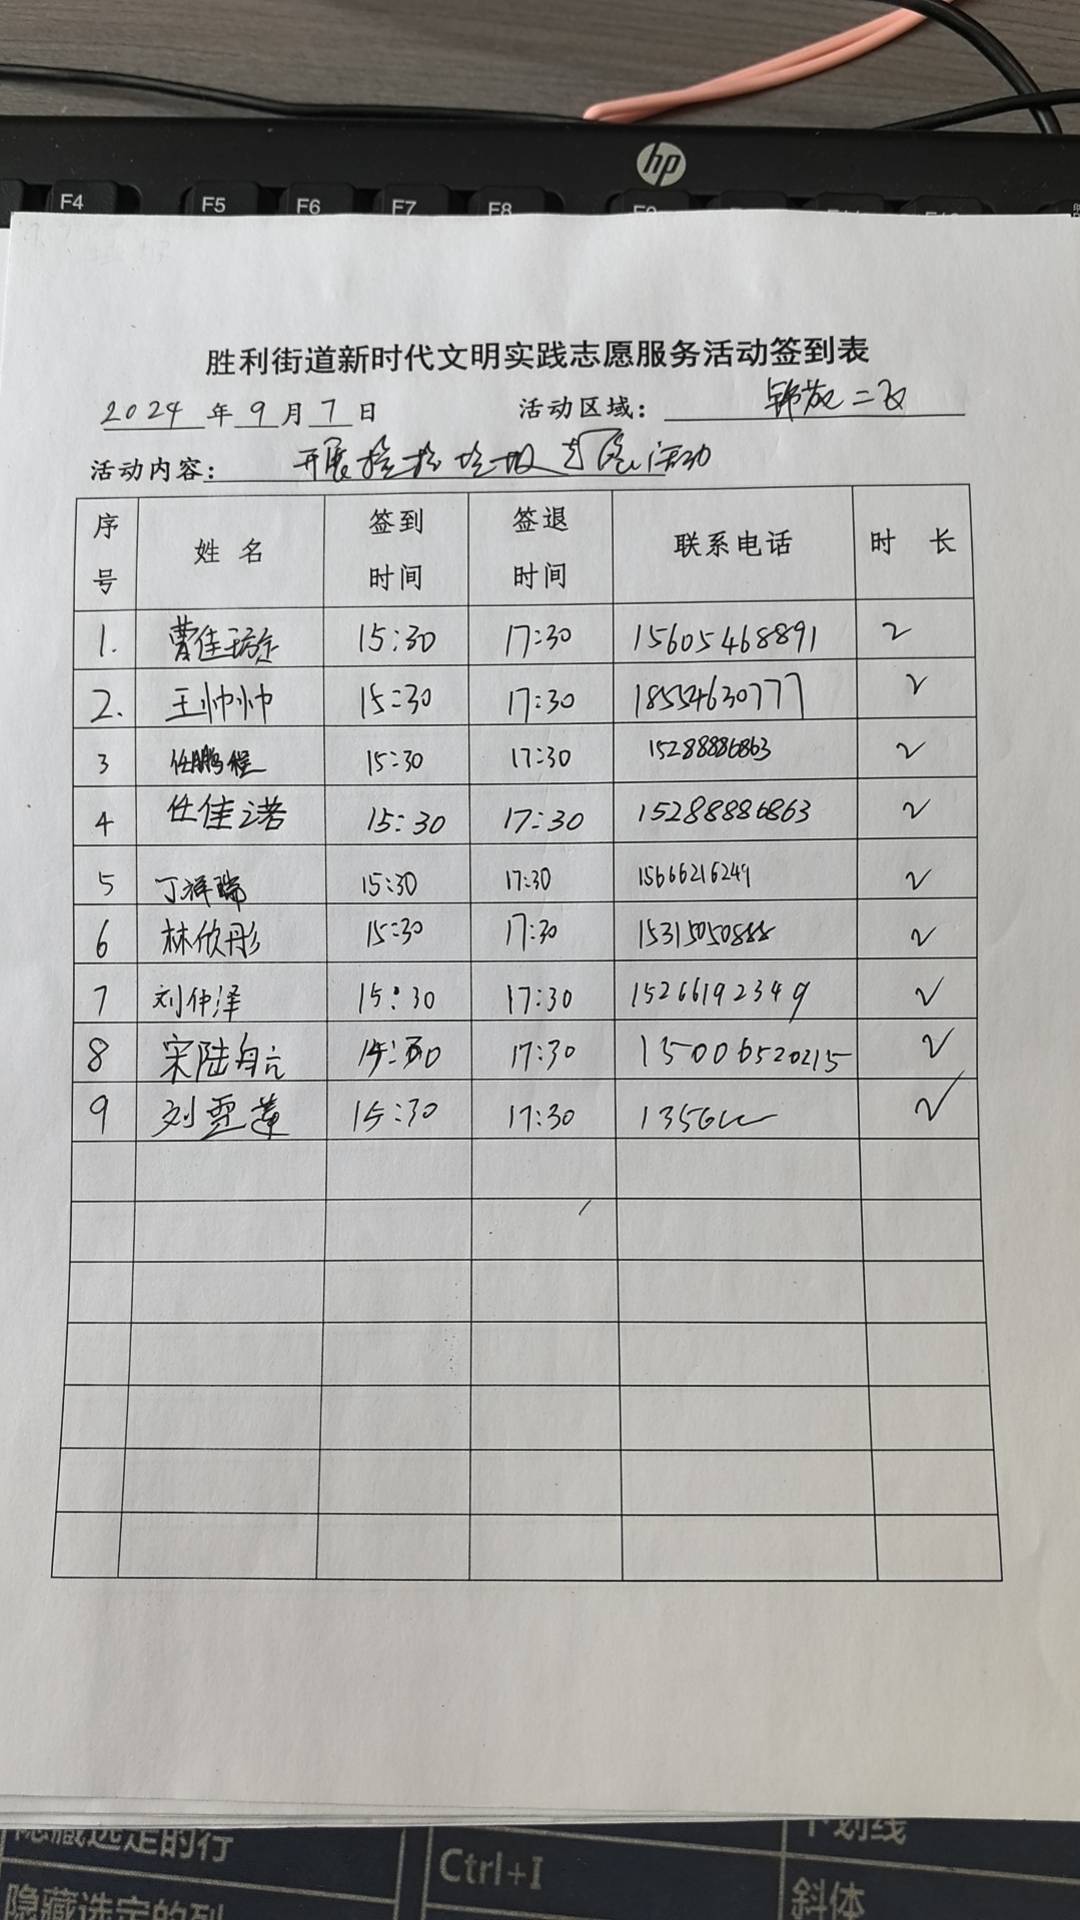 hp
F4 F5 F6 F7 F8 F9
胜利街道新时代文明实践志愿服务活动签到表
2024 年 9 月 7 日 活动区域: 锦苑二区
活动内容: 开展捡拾垃圾志愿活动
序号 姓名 签到时间 签退时间 联系电话 时长
1. 曹佳 15:30 17:30 15605468891 2
2. 王帅帅 15:30 17:30 18554630777 2
3 任鹏程 15:30 17:30 15288886863 2
4 任佳诺 15:30 17:30 15288886863 2
5 丁祥瑞 15:30 17:30 15666216249 2
6 林欣彤 15:30 17:30 15315050888 2
7 刘仲泽 15:30 17:30 15266192349 √
8 宋陆 15:30 17:30 15006520215 √
9 刘雯莲 15:30 17:30 1356 √
隐藏选定的行 Ctrl+I 下划线
隐藏选定的列 斜体